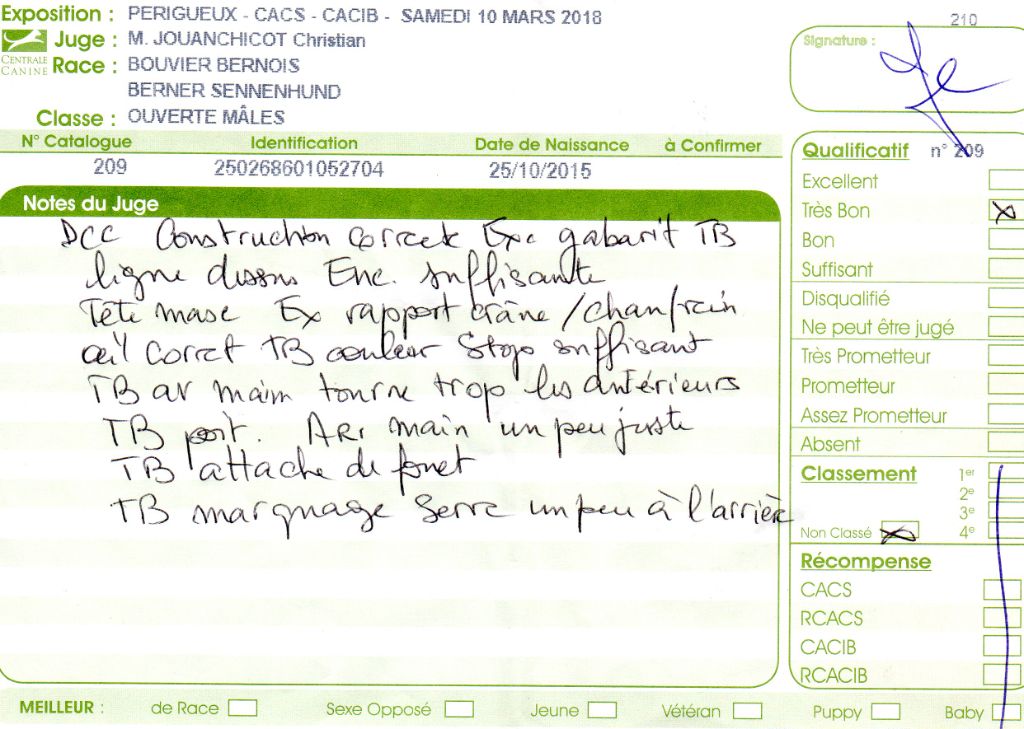 Exposition : PERIGUEUX - CACS - CACIB - SAMEDI 10 MARS 2018
Juge : M. JOUANCHICOT Christian
CENTRALE CANINE
Race : BOUVIER BERNOIS
BERNER SENNENHUND
Classe : OUVERTE MÂLES
N° Catalogue Identification Date de Naissance à Confirmer
209 250268601052704 25/10/2015
Notes du Juge
DCC Construction correcte Exc gabarit TB
ligne dessus Enc. suffisante
Tête masc Ex rapport crâne/chanfrein
œil Correct TB couleur Stop suffisant
TB av main tourne trop les antérieurs
TB poit. Arr main un peu juste
TB attache de fouet
TB marquage Serre un peu à l'arrière
210
Signature :
Qualificatif n° 209
Excellent
Très Bon X
Bon
Suffisant
Disqualifié
Ne peut être jugé
Très Prometteur
Prometteur
Assez Prometteur
Absent
Classement 1er
2e
3e
Non Classé X 4e
Récompense
CACS
RCACS
CACIB
RCACIB
MEILLEUR : de Race Sexe Opposé Jeune Vétéran Puppy Baby